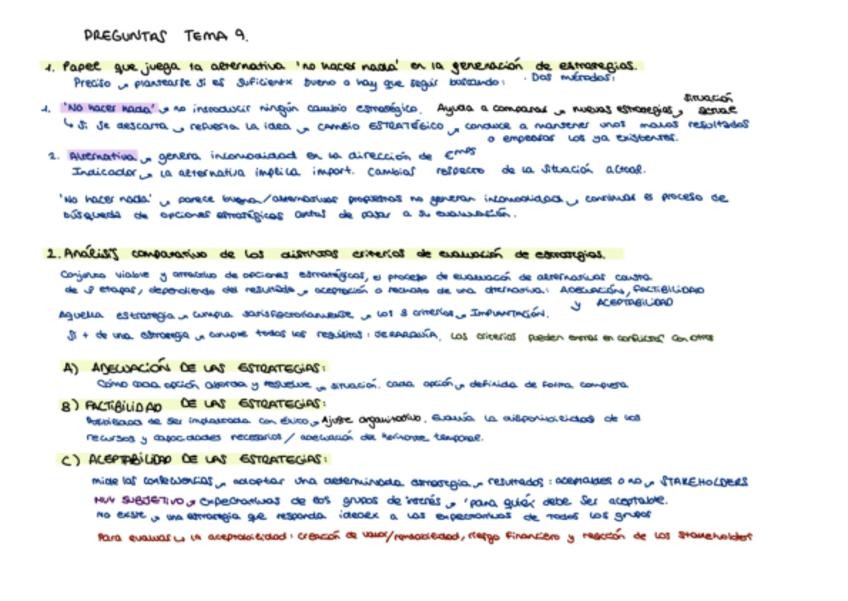 PREGUNTAS TEMA 9.
1. Papel que juega la alternativa 'no hacer nada' en la generación de estrategias.
Preciso → plantearse si es suficiente bueno o hay que seguir buscando: · Dos métodos:
1. 'No hacer nada' → no introducir ningún cambio estratégico. Ayuda a comparar → nuevas estrategias → situación actual
↳ Si se descarta → refuerza la idea → cambio ESTRATÉGICO → conduce a mantener unos malos resultados
o empeorar los ya existentes.
2. Alternativa → genera incomodidad en la dirección de Emps
Indicador → la alternativa implica import. cambios respecto de la situación actual.
'No hacer nada' → parece buena/alternativas propuestas no generan incomodidad → continuar el proceso de
búsqueda de opciones estratégicas antes de pasar a su evaluación.
2. Análisis comparativo de los distintos criterios de evaluación de estrategias.
Conjunto viable y atractivo de opciones estratégicas, el proceso de evaluación de alternativas consta
de 3 etapas, dependiendo del resultado → aceptación o rechazo de una alternativa: ADECUACIÓN, FACTIBILIDAD
y ACEPTABILIDAD
Aquella estrategia → cumpla satisfactoriamente → los 3 criterios → IMPLANTACIÓN.
Si + de una estrategia → cumple todos los requisitos: JERARQUÍA. Los criterios pueden entrar en conflictos con otros
A) ADECUACIÓN DE LAS ESTRATEGIAS:
Cómo cada opción aborda y resuelve → situación. cada opción → definida de forma completa
B) FACTIBILIDAD DE LAS ESTRATEGIAS:
Posibilidad de ser implantada con éxito → Ajuste organizativo. Evalúa la disponibilidad de los
recursos y capacidades necesarios / adecuación del horizonte temporal.
C) ACEPTABILIDAD DE LAS ESTRATEGIAS:
mide las consecuencias → adoptar una determinada estrategia → resultados: aceptables o no → STAKEHOLDERS
MUY SUBJETIVO → expectativas de los grupos de interés → 'para quién debe ser aceptable.
No existe → una estrategia que responda a las expectativas de todos los grupos
Para evaluar ↳ la aceptabilidad: creación de valor/rentabilidad, riesgo financiero y reacción de los stakeholders